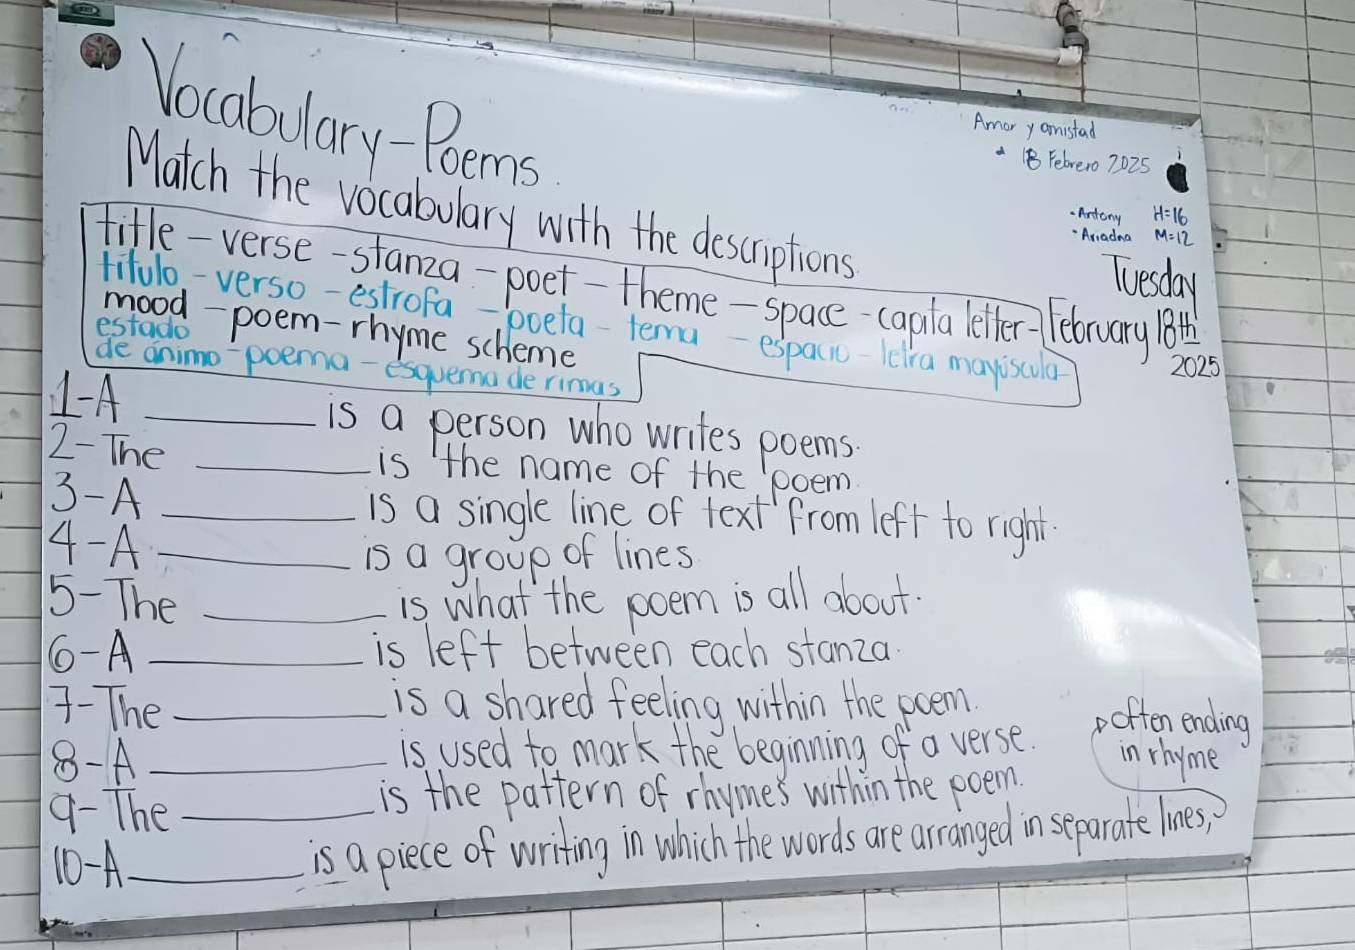 Vocabulary-Poems.
Match the vocabulary with the descriptions.
Amor y amistad
18 Febrero 2025
- Antony H=16
- Ariadna M=12
Tuesday
February 18th
2025
title - verse - stanza - poet - theme - space - capita letter -
título - verso - estrofa - poeta - tema - espacio - letra mayúscula -
mood - poem - rhyme scheme
estado
de ánimo - poema - esquema de rimas
1-A ______ is a person who writes poems.
2-The ______ is the name of the poem.
3-A ______ is a single line of text from left to right.
4-A ______ is a group of lines.
5-The ______ is what the poem is all about.
6-A ______ is left between each stanza.
7-The ______ is a shared feeling within the poem.
8-A ______ is used to mark the beginning of a verse.
9-The ______ is the pattern of rhymes within the poem.
10-A ______ is a piece of writing in which the words are arranged in separate lines,
often ending
in rhyme